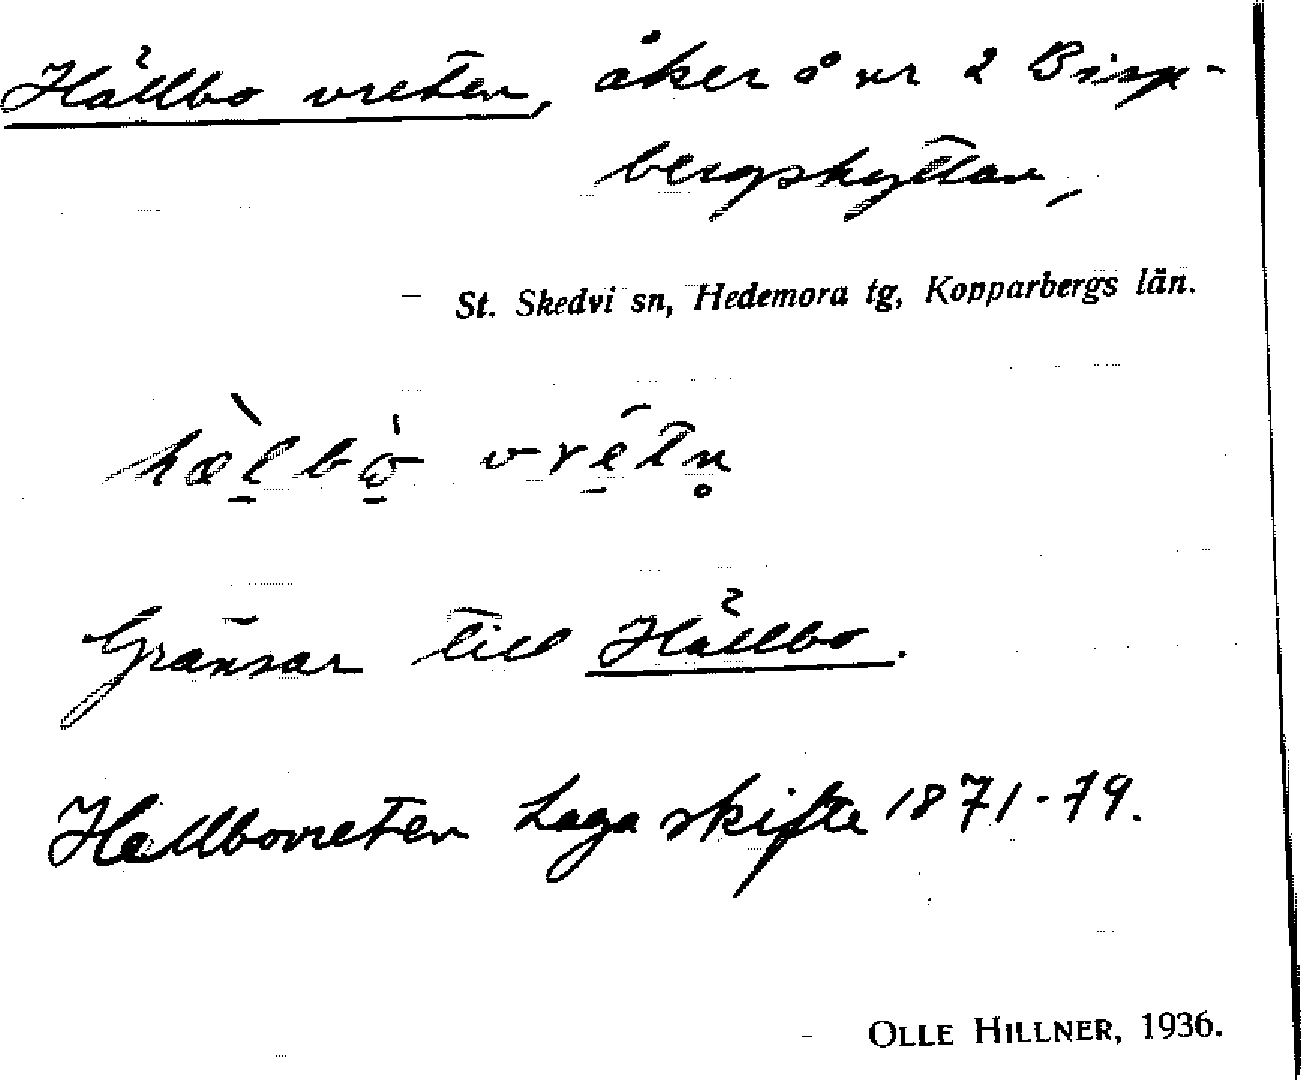 Hällbo vreten, åker å nr 2 Bisp-
bergshyttan,
St. Skedvi sn, Hedemora tg, Kopparbergs län.
hæ̀l̠bò̠ vré̠tn̥
Gränsar till Hällbo.
Hällbovreten Laga skifte 1871-79.
OLLE HILLNER, 1936.